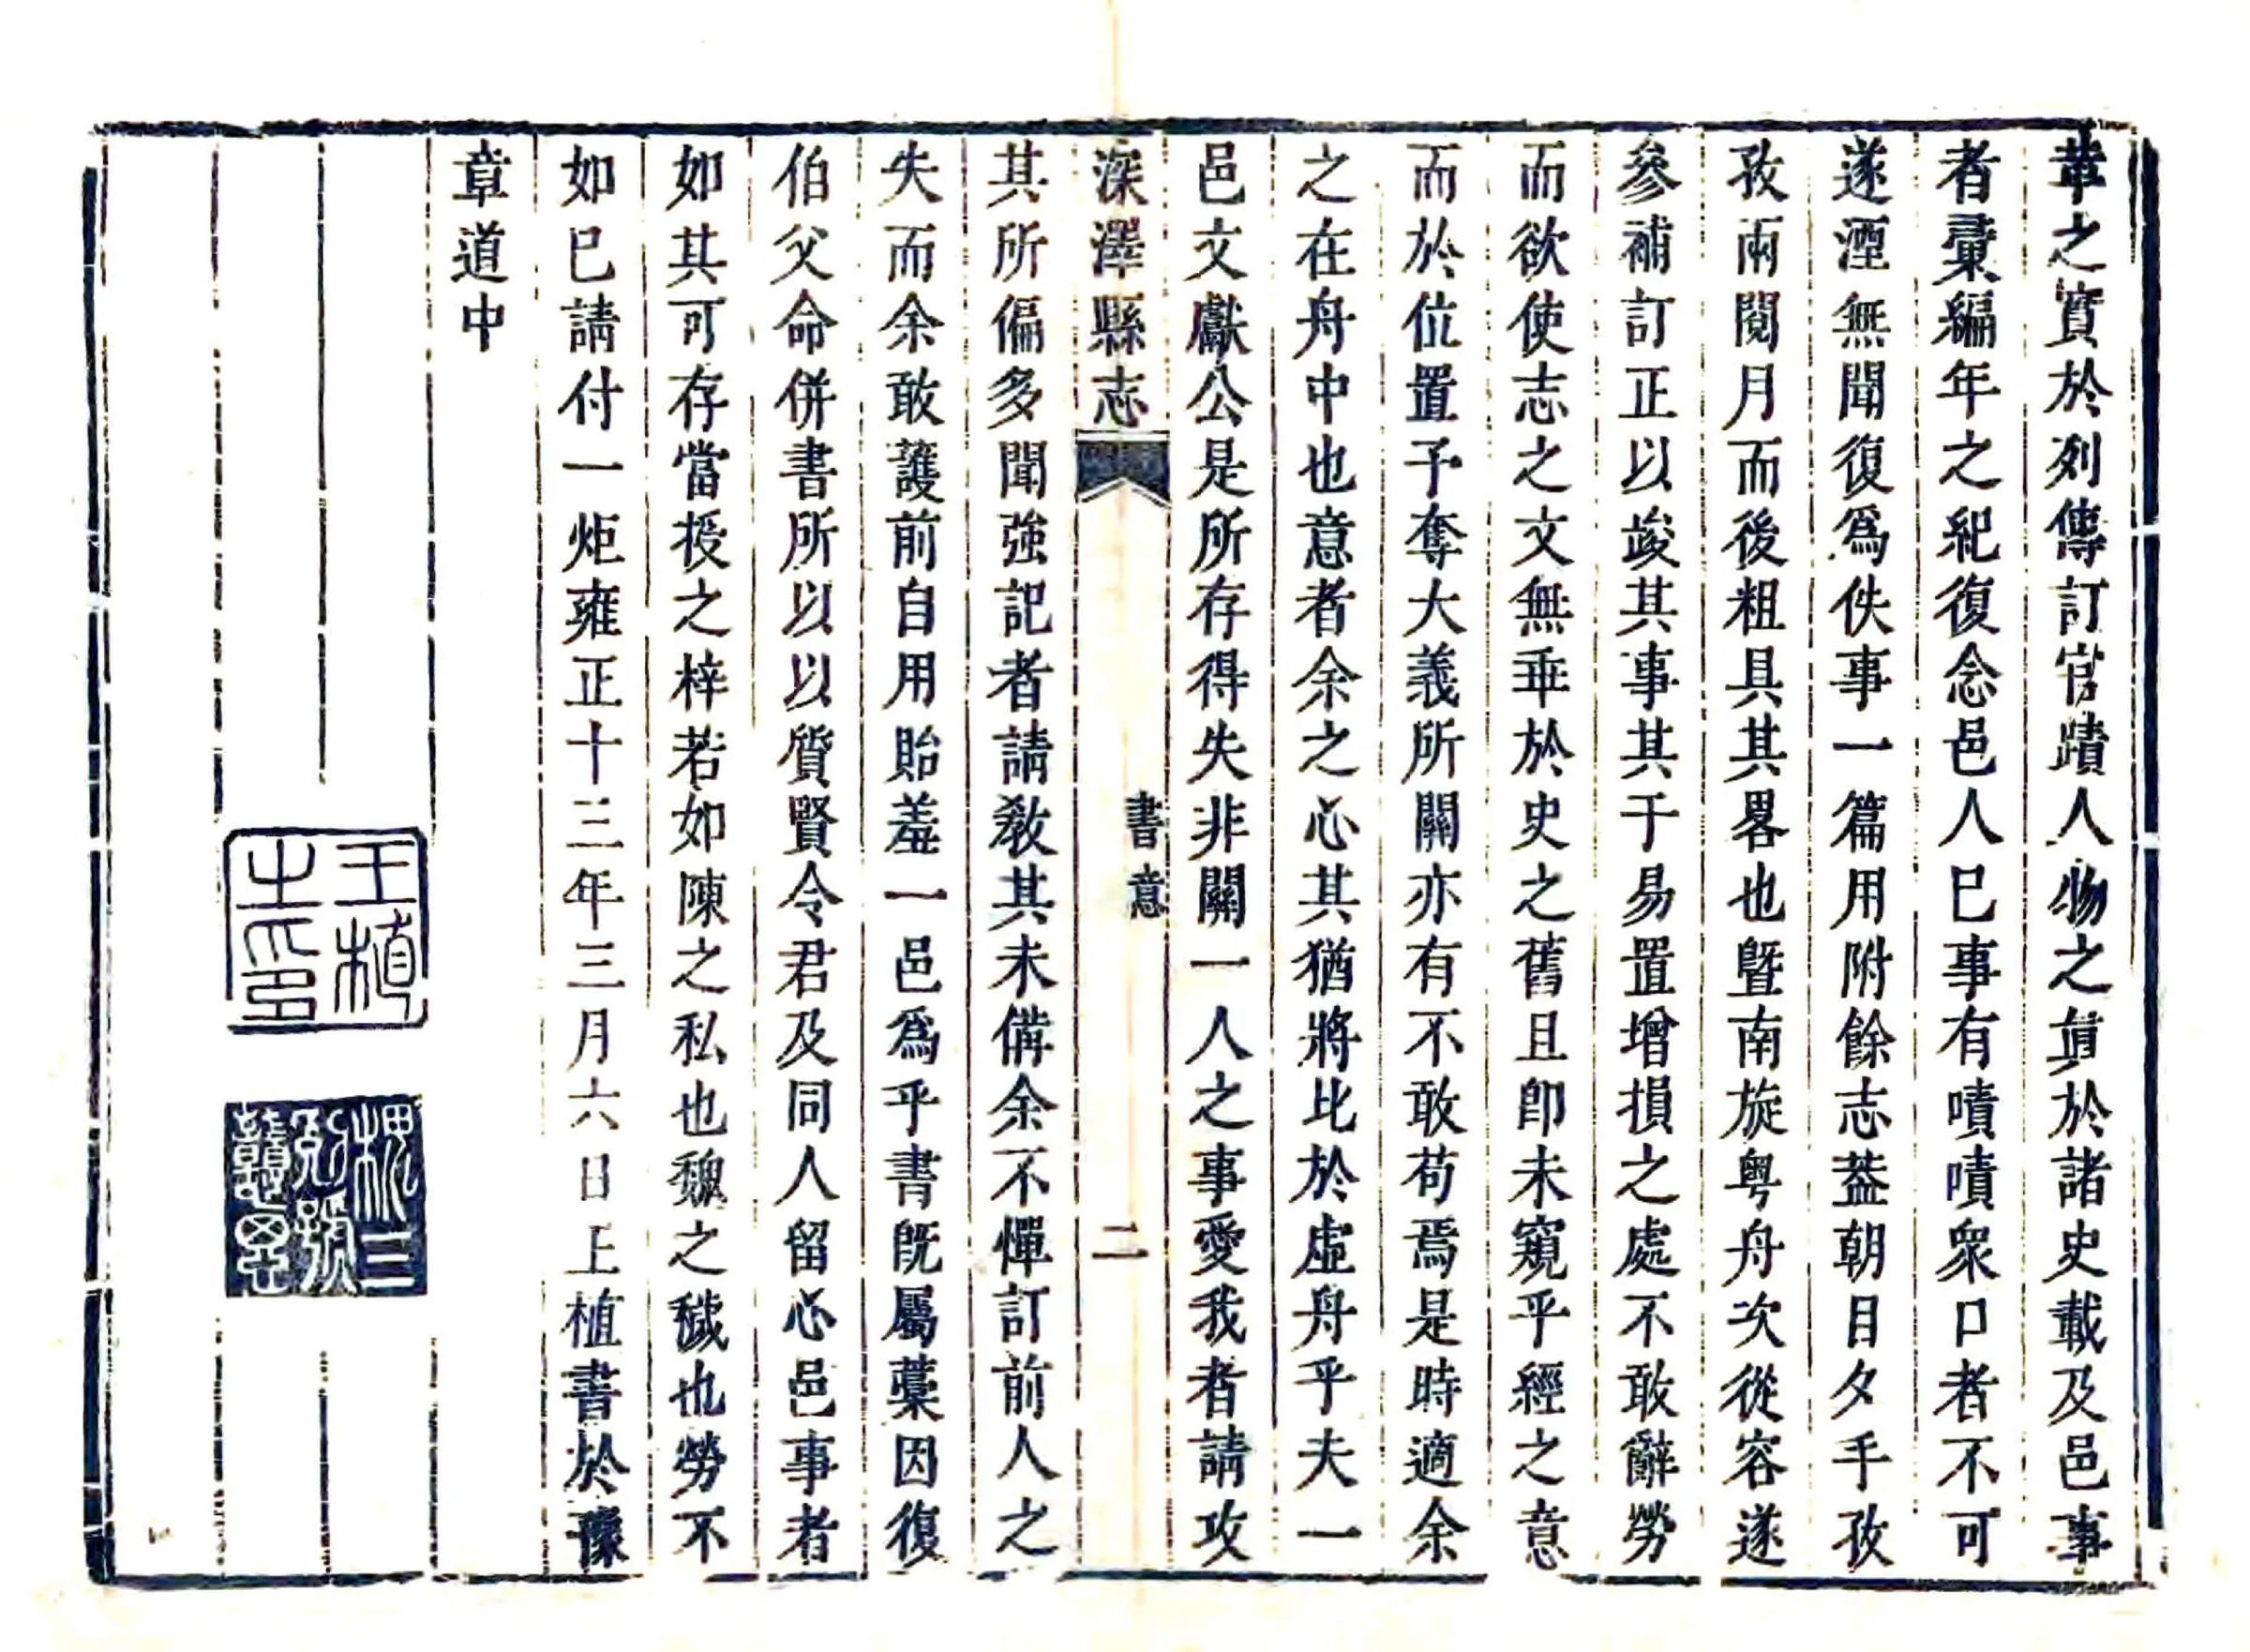 葦之實於列傳訂官蹟人物之眞於諸史載及邑事
者彚編年之紀復念邑人巳事有嘖嘖衆口者不可
遂湮無聞復爲佚事一篇用附餘志葢朝日夕手孜
孜兩閱月而後粗具其畧也曁南旋粤舟次從容遂
參補訂正以竣其事其于易置增損之處不敢辭勞
而欲使志之文無乖於史之舊且卽未窺乎經之意
而於位置予奪大義所關亦有不敢苟焉是時適余
之在舟中也意者余之心其猶將比於虛舟乎夫一
邑文獻公是所存得失非關一人之事愛我者請攻
深澤縣志
書意
二
其所偏多聞強記者請敎其未備余不憚訂前人之
失而余敢護前自用貽羞一邑爲乎書旣屬藁因復
伯父命併書所以以質賢令君及同人留心邑事者
如其可存當授之梓若如陳之私也魏之穢也勞不
如巳請付一炬雍正十三年三月六日上植書於豫
章道中
王植之印